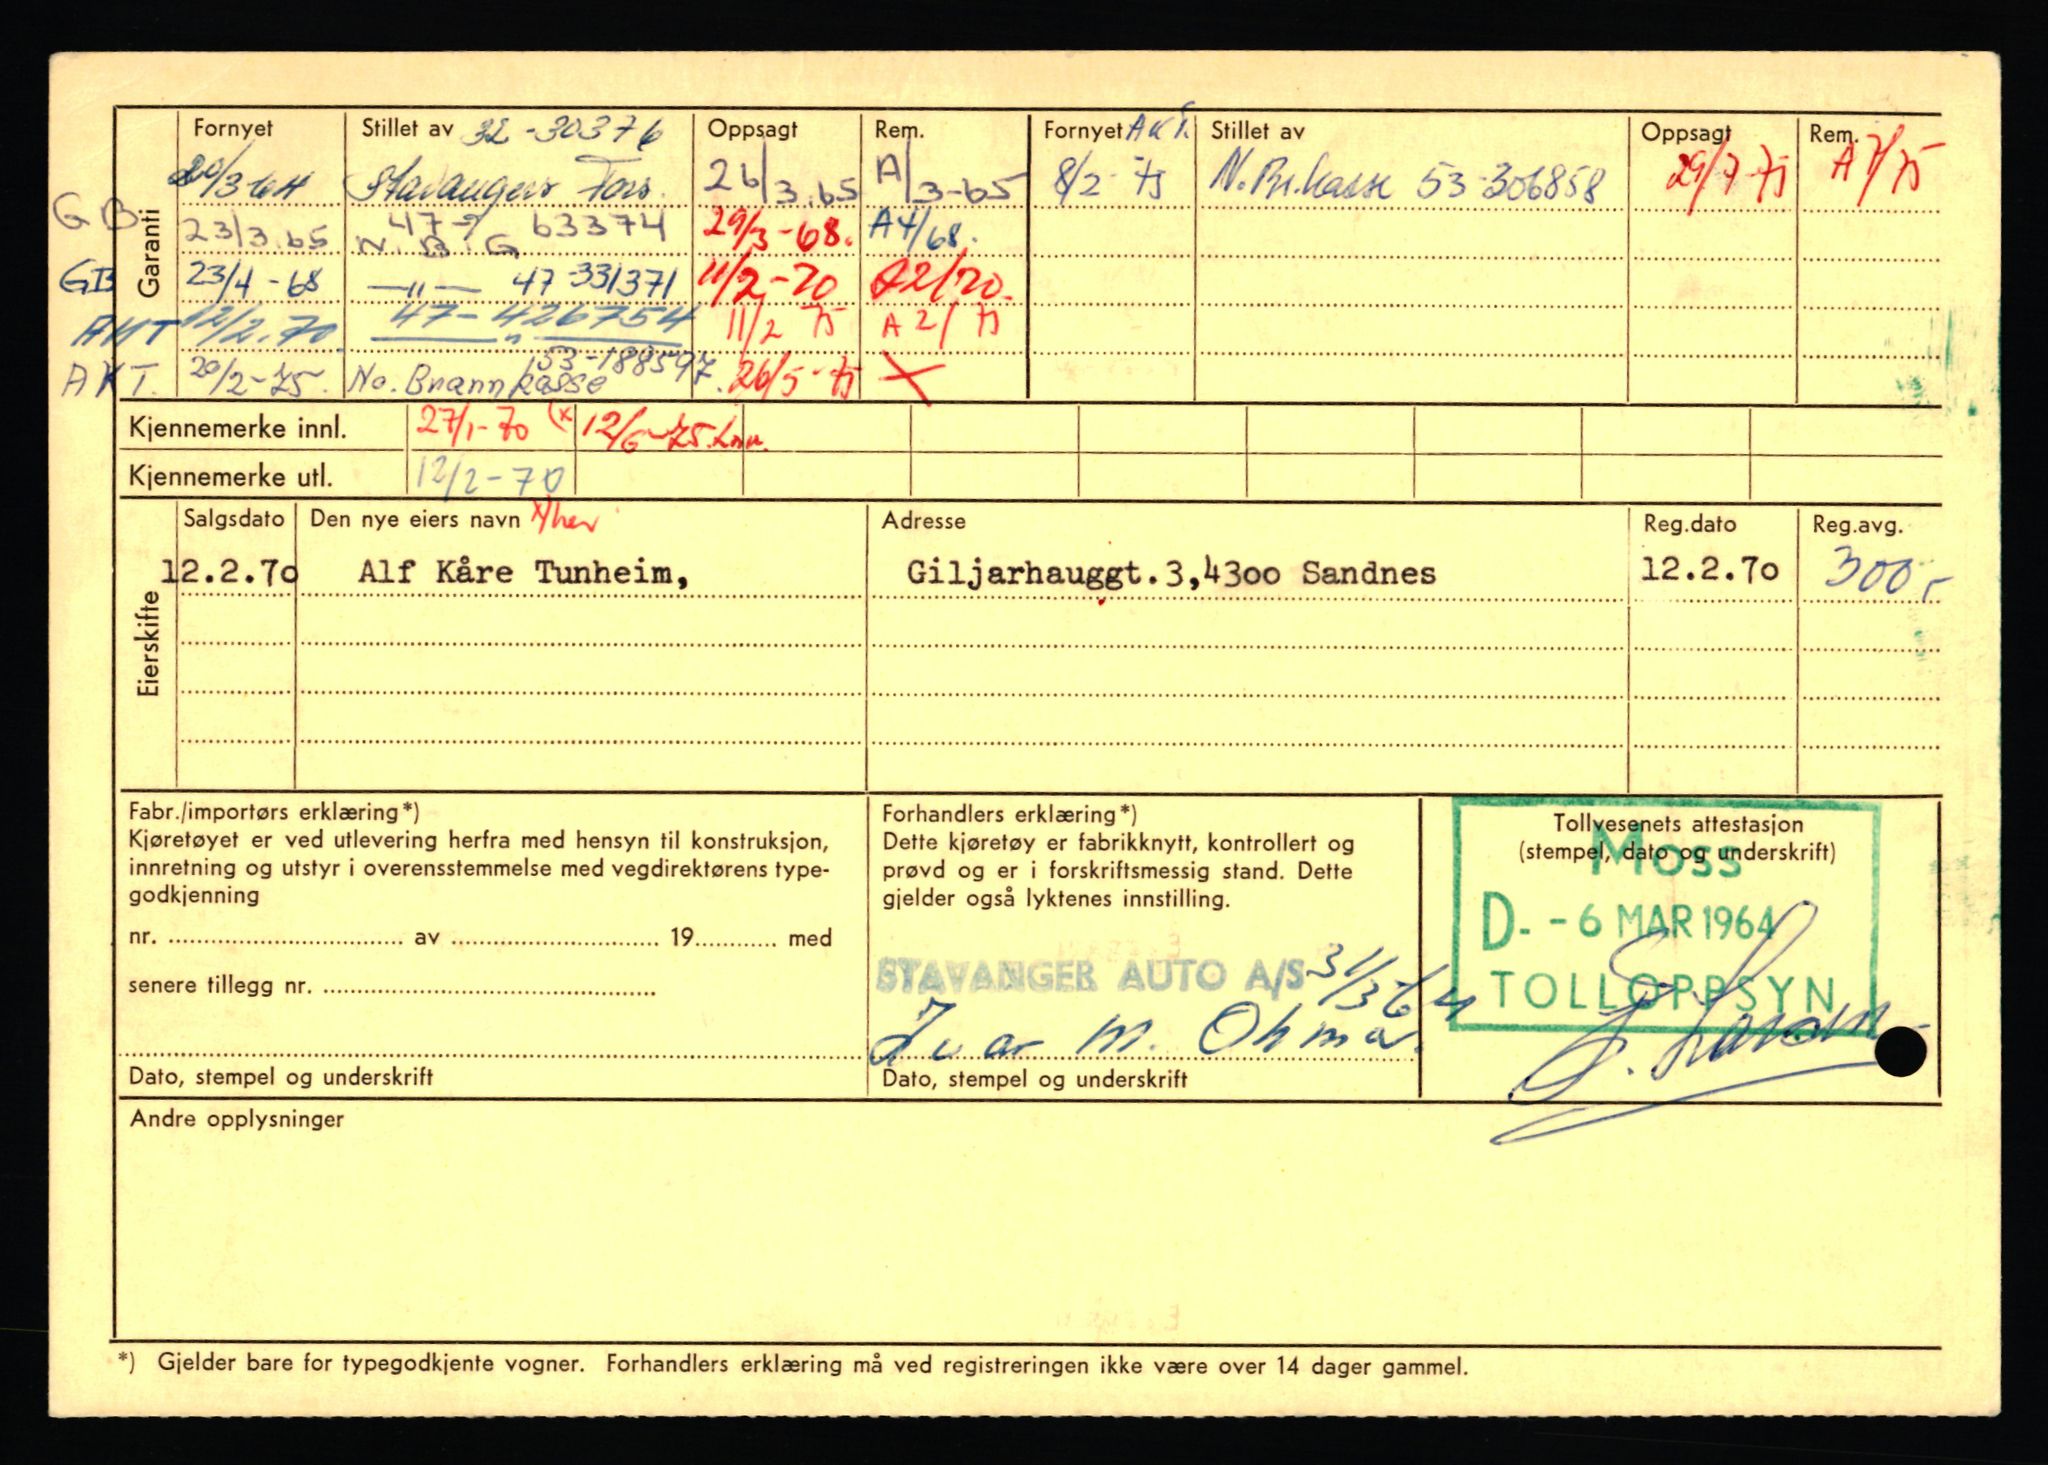 Fornyet Stillet av 32-30376 Oppsagt Rem. Fornyet AKT. Stillet av Oppsagt Rem.
20/3 64 Stavangers Fors. 26/3.65 A/3-65 8/2-75 N.Br.kasse 53-306858 29/7-75 A 7/75
GB 23/3.65 47-63374 N.B.G 29/3-68. A4/68.
Garanti
GB 23/4-68 —"— 47-331371 11/2-70 A2/70.
AKT 12/2.70 47-426754 —"— 11/2 75 A 2/75
AKT. 20/2-75. No. Brannkasse 53-188597. 26/5-75 X
Kjennemerke innl. 27/1-70 (x 12/6-75.
Kjennemerke utl. 12/2-70
Salgsdato Den nye eiers navn Adresse Reg.dato Reg.avg.
12.2.70 Alf Kåre Tunheim, Giljarhauggt.3,4300 Sandnes 12.2.70 300,-
Eierskifte
Fabr./importørs erklæring*)
Kjøretøyet er ved utlevering herfra med hensyn til konstruksjon,
innretning og utstyr i overensstemmelse med vegdirektørens type-
godkjenning
nr. .................. av .................. 19............ med
senere tillegg nr. ..................
Dato, stempel og underskrift
Forhandlers erklæring*)
Dette kjøretøy er fabrikknytt, kontrollert og
prøvd og er i forskriftsmessig stand. Dette
gjelder også lyktenes innstilling.
STAVANGER AUTO A/S 31/3-64
Ivar M.
Dato, stempel og underskrift
Tollvesenets attestasjon
(stempel, dato og underskrift)
MOSS
D. -6 MAR 1964
TOLLOPPSYN
Andre opplysninger
*) Gjelder bare for typegodkjente vogner. Forhandlers erklæring må ved registreringen ikke være over 14 dager gammel.